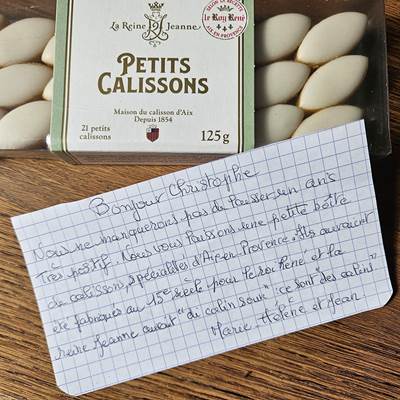 La Reine Jeanne
SELON LA RECETTE
le Roy René
AIX EN PROVENCE
PETITS
CALISSONS
Maison du calisson d'Aix
Depuis 1854
21 petits
calissons
125g
Bonjour Christophe
Nous ne manquerons pas de laisser un avis
Très positif. Nous vous laissons une petite boîte
de calissons, spécialités d'Aix en Provence. Ils auraient
été fabriqués au 15e siècle pour le roi René et la
reine Jeanne aurait "di calin soun" : ce sont "des calins"
Marie Hélène et Jean